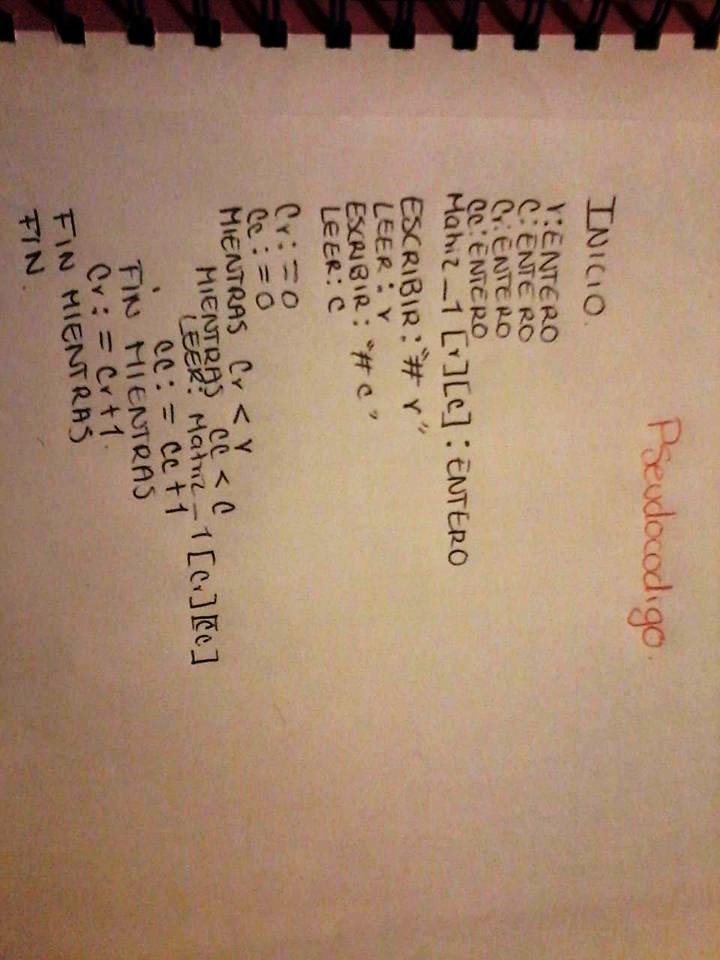 Pseudocodigo.
INICIO.
r: ENTERO
C: ENTERO
Cr: ENTERO
CC: ENTERO
Matriz_1 [r][c] : ENTERO
ESCRIBIR: "# r"
LEER: r
ESCRIBIR: "# c"
LEER: C
Cr: = 0
CC: = 0
MIENTRAS Cr < r
MIENTRAS CC < C
LEER: Matriz_1 [Cr][CC]
CC: = CC + 1
FIN MIENTRAS
Cr: = Cr + 1.
FIN MIENTRAS
FIN.